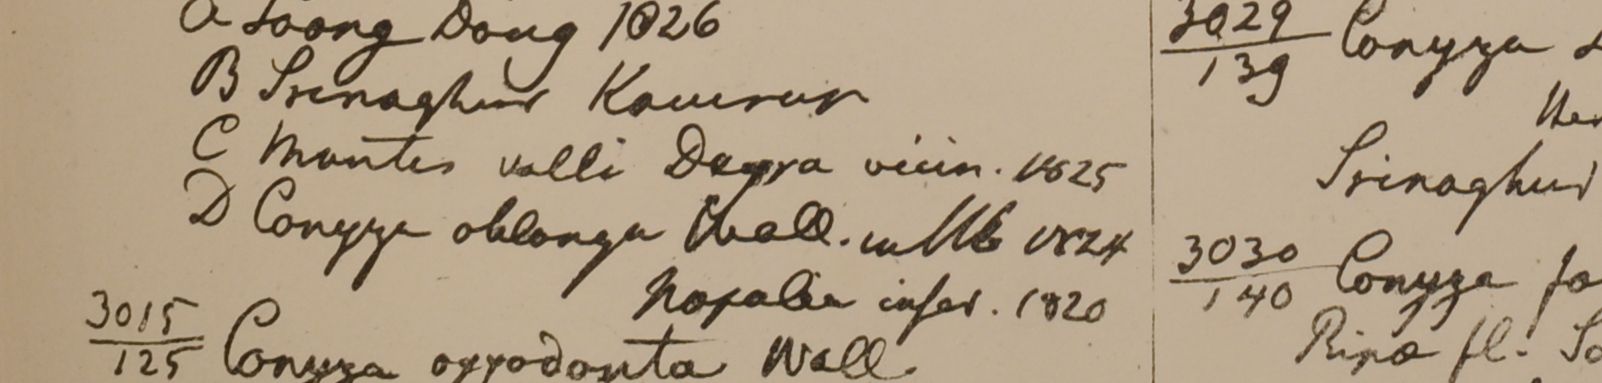 a Toong Dong 1826
B Srinaghur Kamrup
C Montes valli Deyra vicin. 1825
D Conyza oblonga Wall. in Mb 1824
Napalia infer. 1820
3015
125 Conyza oxyodonta Wall.
3029
139 Conyza
Srinaghur
3030
140 Conyza fa
Ripa fl.